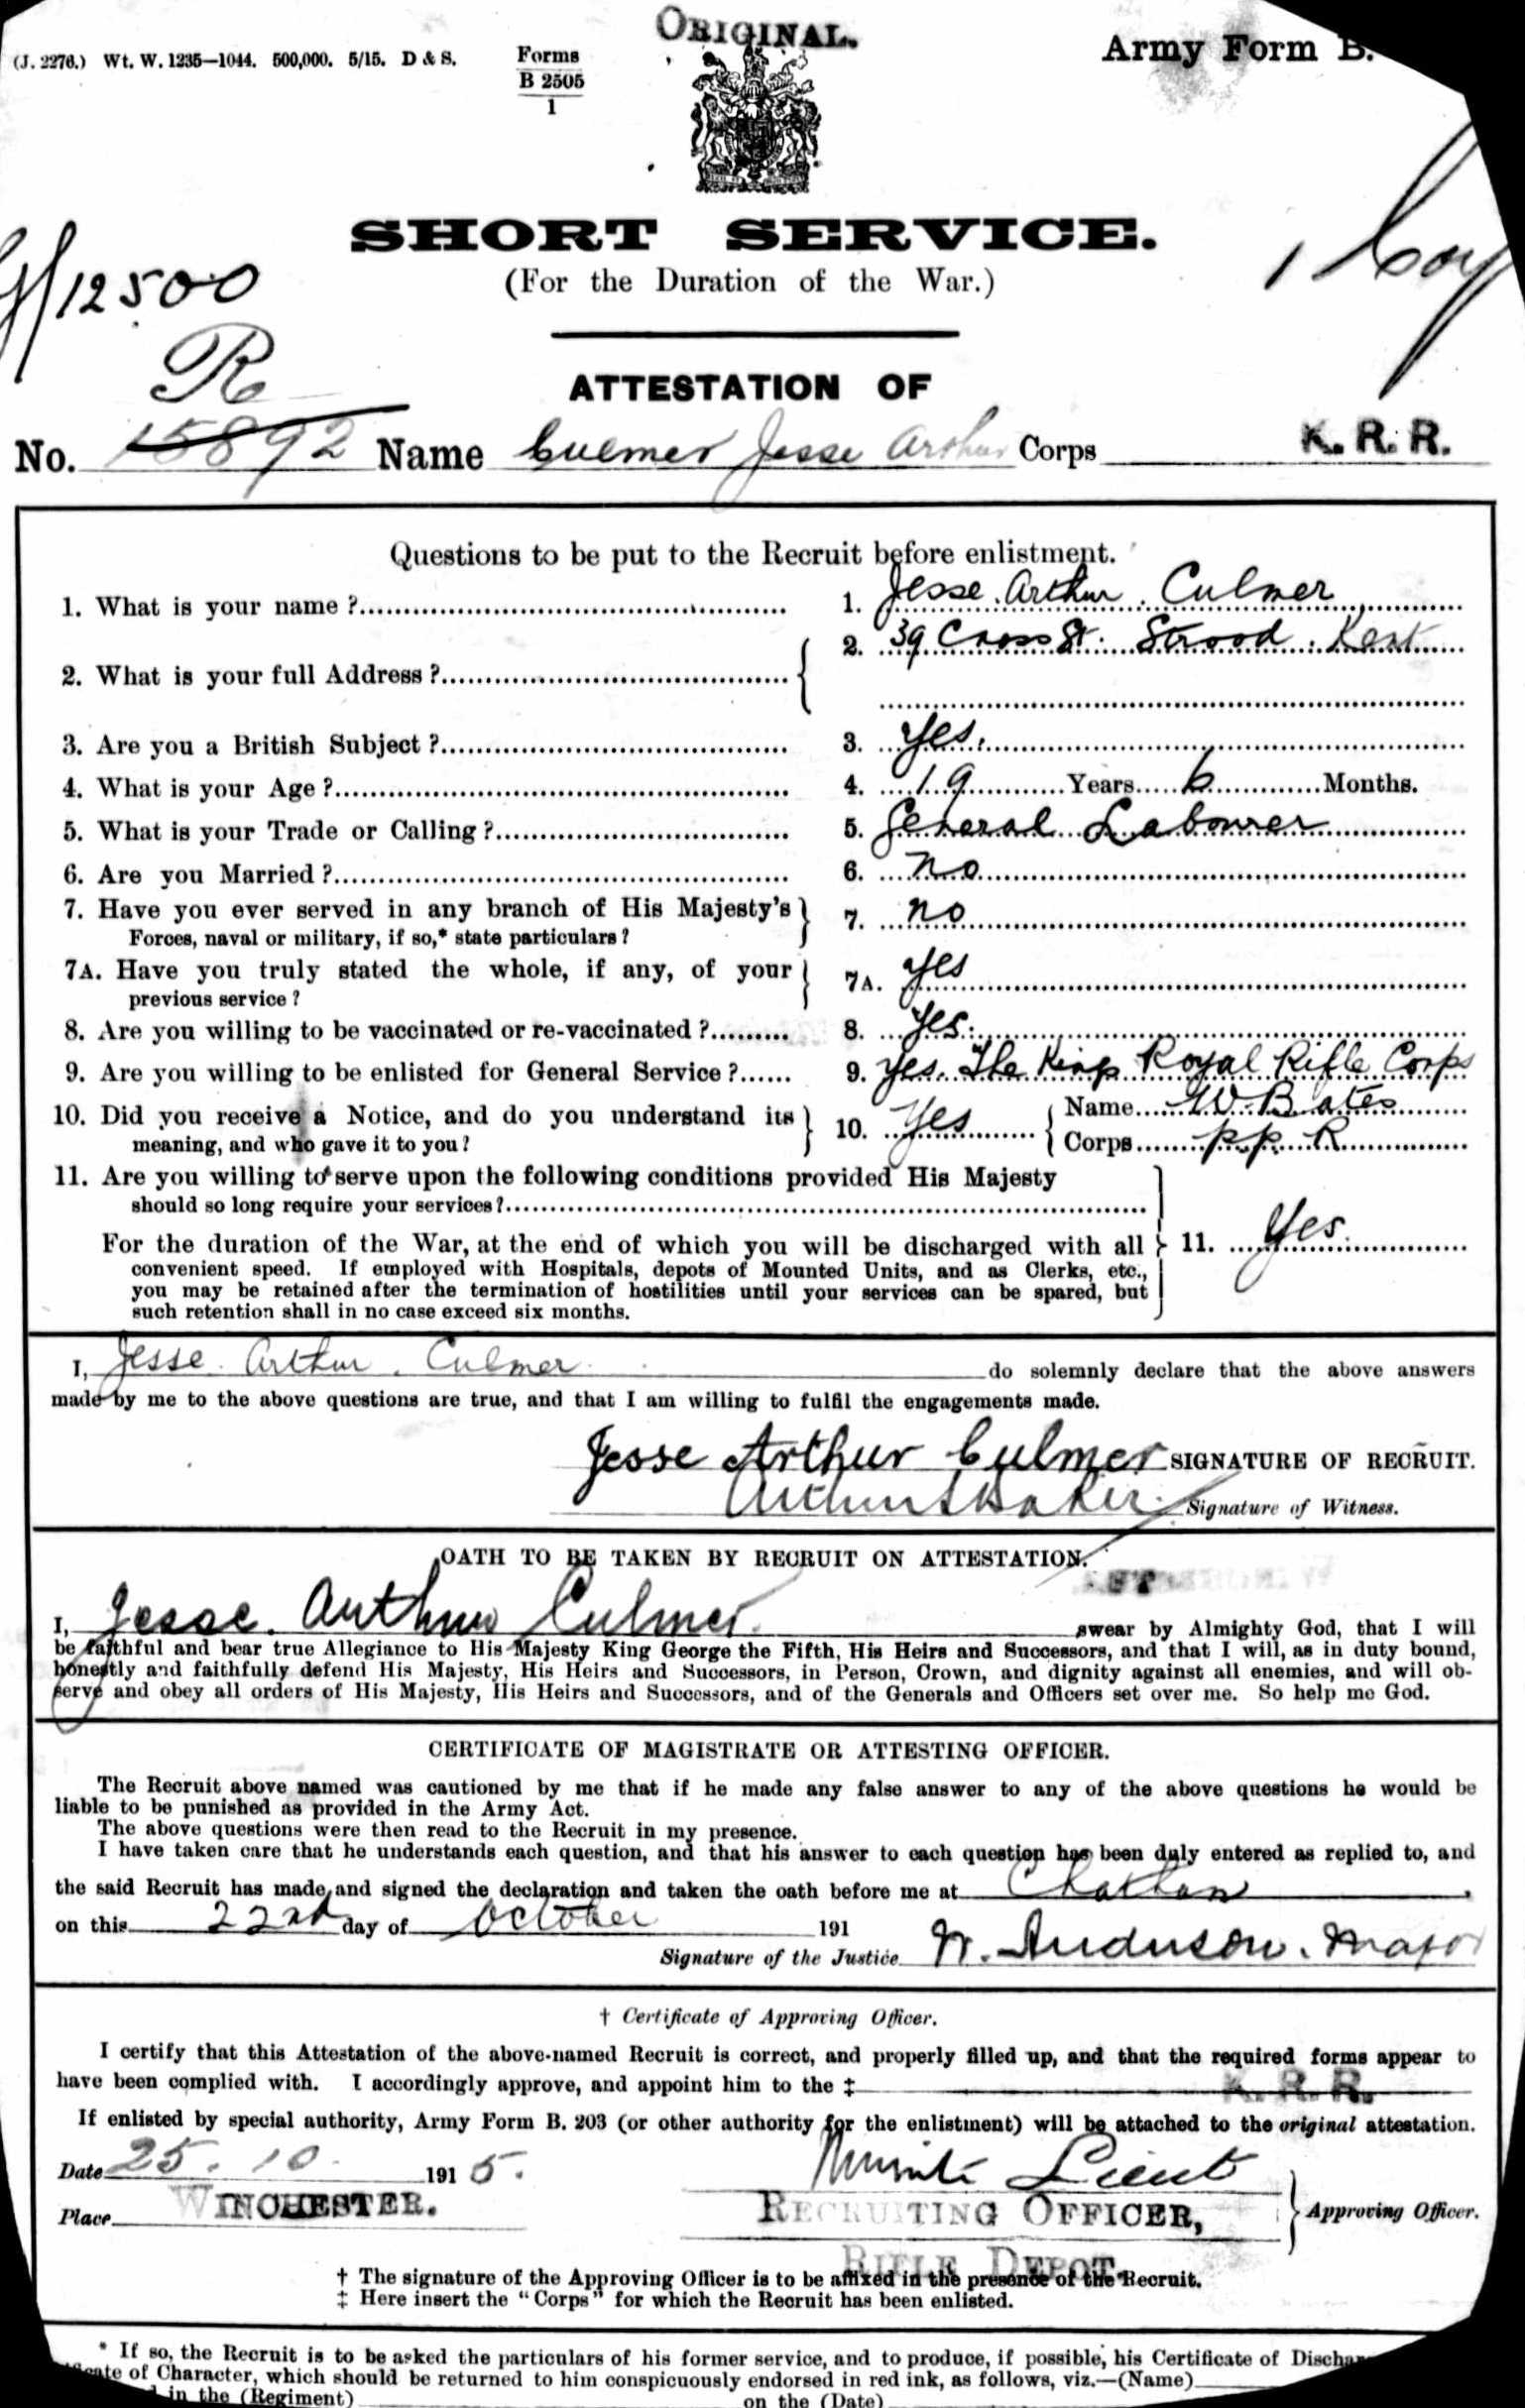 ORIGINAL.
(J. 2276.) Wt. W. 1235—1044. 500,000. 5/15. D & S. Forms
B 2505
1
Army Form B.
SHORT SERVICE.
(For the Duration of the War.)
/12500
1 Coy
R
ATTESTATION OF
No. 15892 Name Culmer Jesse Arthur Corps K. R. R.
Questions to be put to the Recruit before enlistment.
1. What is your name ? 1. Jesse Arthur Culmer
2. What is your full Address ? 2. 39 Cross St. Strood. Kent
3. Are you a British Subject ? 3. Yes.
4. What is your Age ? 4. 19 Years 6 Months.
5. What is your Trade or Calling ? 5. General Labourer
6. Are you Married ? 6. no
7. Have you ever served in any branch of His Majesty's 7. no
Forces, naval or military, if so,* state particulars ?
7A. Have you truly stated the whole, if any, of your 7A. Yes
previous service ?
8. Are you willing to be vaccinated or re-vaccinated ? 8. Yes.
9. Are you willing to be enlisted for General Service ? 9. Yes. The Kings Royal Rifle Corps
10. Did you receive a Notice, and do you understand its 10. Yes Name W. Bates
meaning, and who gave it to you ? Corps P.P. R
11. Are you willing to serve upon the following conditions provided His Majesty
should so long require your services ?
For the duration of the War, at the end of which you will be discharged with all 11. Yes.
convenient speed. If employed with Hospitals, depots of Mounted Units, and as Clerks, etc.,
you may be retained after the termination of hostilities until your services can be spared, but
such retention shall in no case exceed six months.
I, Jesse Arthur Culmer do solemnly declare that the above answers
made by me to the above questions are true, and that I am willing to fulfil the engagements made.
Jesse Arthur Culmer SIGNATURE OF RECRUIT.
Arthur Baker Signature of Witness.
OATH TO BE TAKEN BY RECRUIT ON ATTESTATION.
I, Jesse Arthur Culmer swear by Almighty God, that I will
be faithful and bear true Allegiance to His Majesty King George the Fifth, His Heirs and Successors, and that I will, as in duty bound,
honestly and faithfully defend His Majesty, His Heirs and Successors, in Person, Crown, and dignity against all enemies, and will ob-
serve and obey all orders of His Majesty, His Heirs and Successors, and of the Generals and Officers set over me. So help me God.
CERTIFICATE OF MAGISTRATE OR ATTESTING OFFICER.
The Recruit above named was cautioned by me that if he made any false answer to any of the above questions he would be
liable to be punished as provided in the Army Act.
The above questions were then read to the Recruit in my presence.
I have taken care that he understands each question, and that his answer to each question has been duly entered as replied to, and
the said Recruit has made and signed the declaration and taken the oath before me at Chatham
on this 22nd day of October 191
Signature of the Justice W. Anderson. Major
† Certificate of Approving Officer.
I certify that this Attestation of the above-named Recruit is correct, and properly filled up, and that the required forms appear to
have been complied with. I accordingly approve, and appoint him to the ‡ K. R. R.
If enlisted by special authority, Army Form B. 203 (or other authority for the enlistment) will be attached to the original attestation.
Date 25. 10. 1915. Lieut
Place WINCHESTER. RECRUITING OFFICER, Approving Officer.
RIFLE DEPOT.
† The signature of the Approving Officer is to be affixed in the presence of the Recruit.
‡ Here insert the "Corps" for which the Recruit has been enlisted.
* If so, the Recruit is to be asked the particulars of his former service, and to produce, if possible, his Certificate of
of Character, which should be returned to him conspicuously endorsed in red ink, as follows, viz.—(Name)
in the (Regiment) on the (Date)